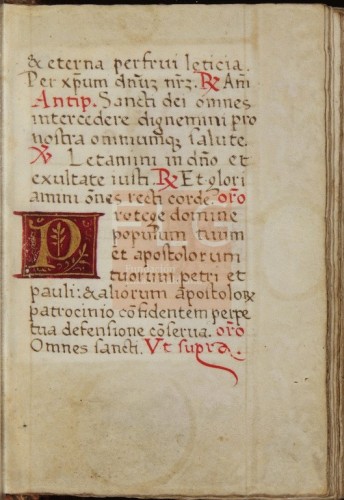 & eterna perfrui leticia.
Per xp̄um dn̄uʒ nr̄ʒ. ℟ Am̄
Antip. Sancti dei omnes
intercedere dignemini pro
nostra omniumque salute.
℣ Letamini in dn̄o et
exultate iusti. ℟ Et glori
amini om̄es recti corde. or̄o
Protege domine
populum tuum
et apostolorum
tuorum petri et
pauli: & aliorum apostoloꝝ
patrocinio confidentem perpe
tua defensione cōserva. or̄o
Omnes sancti. Ut supra.